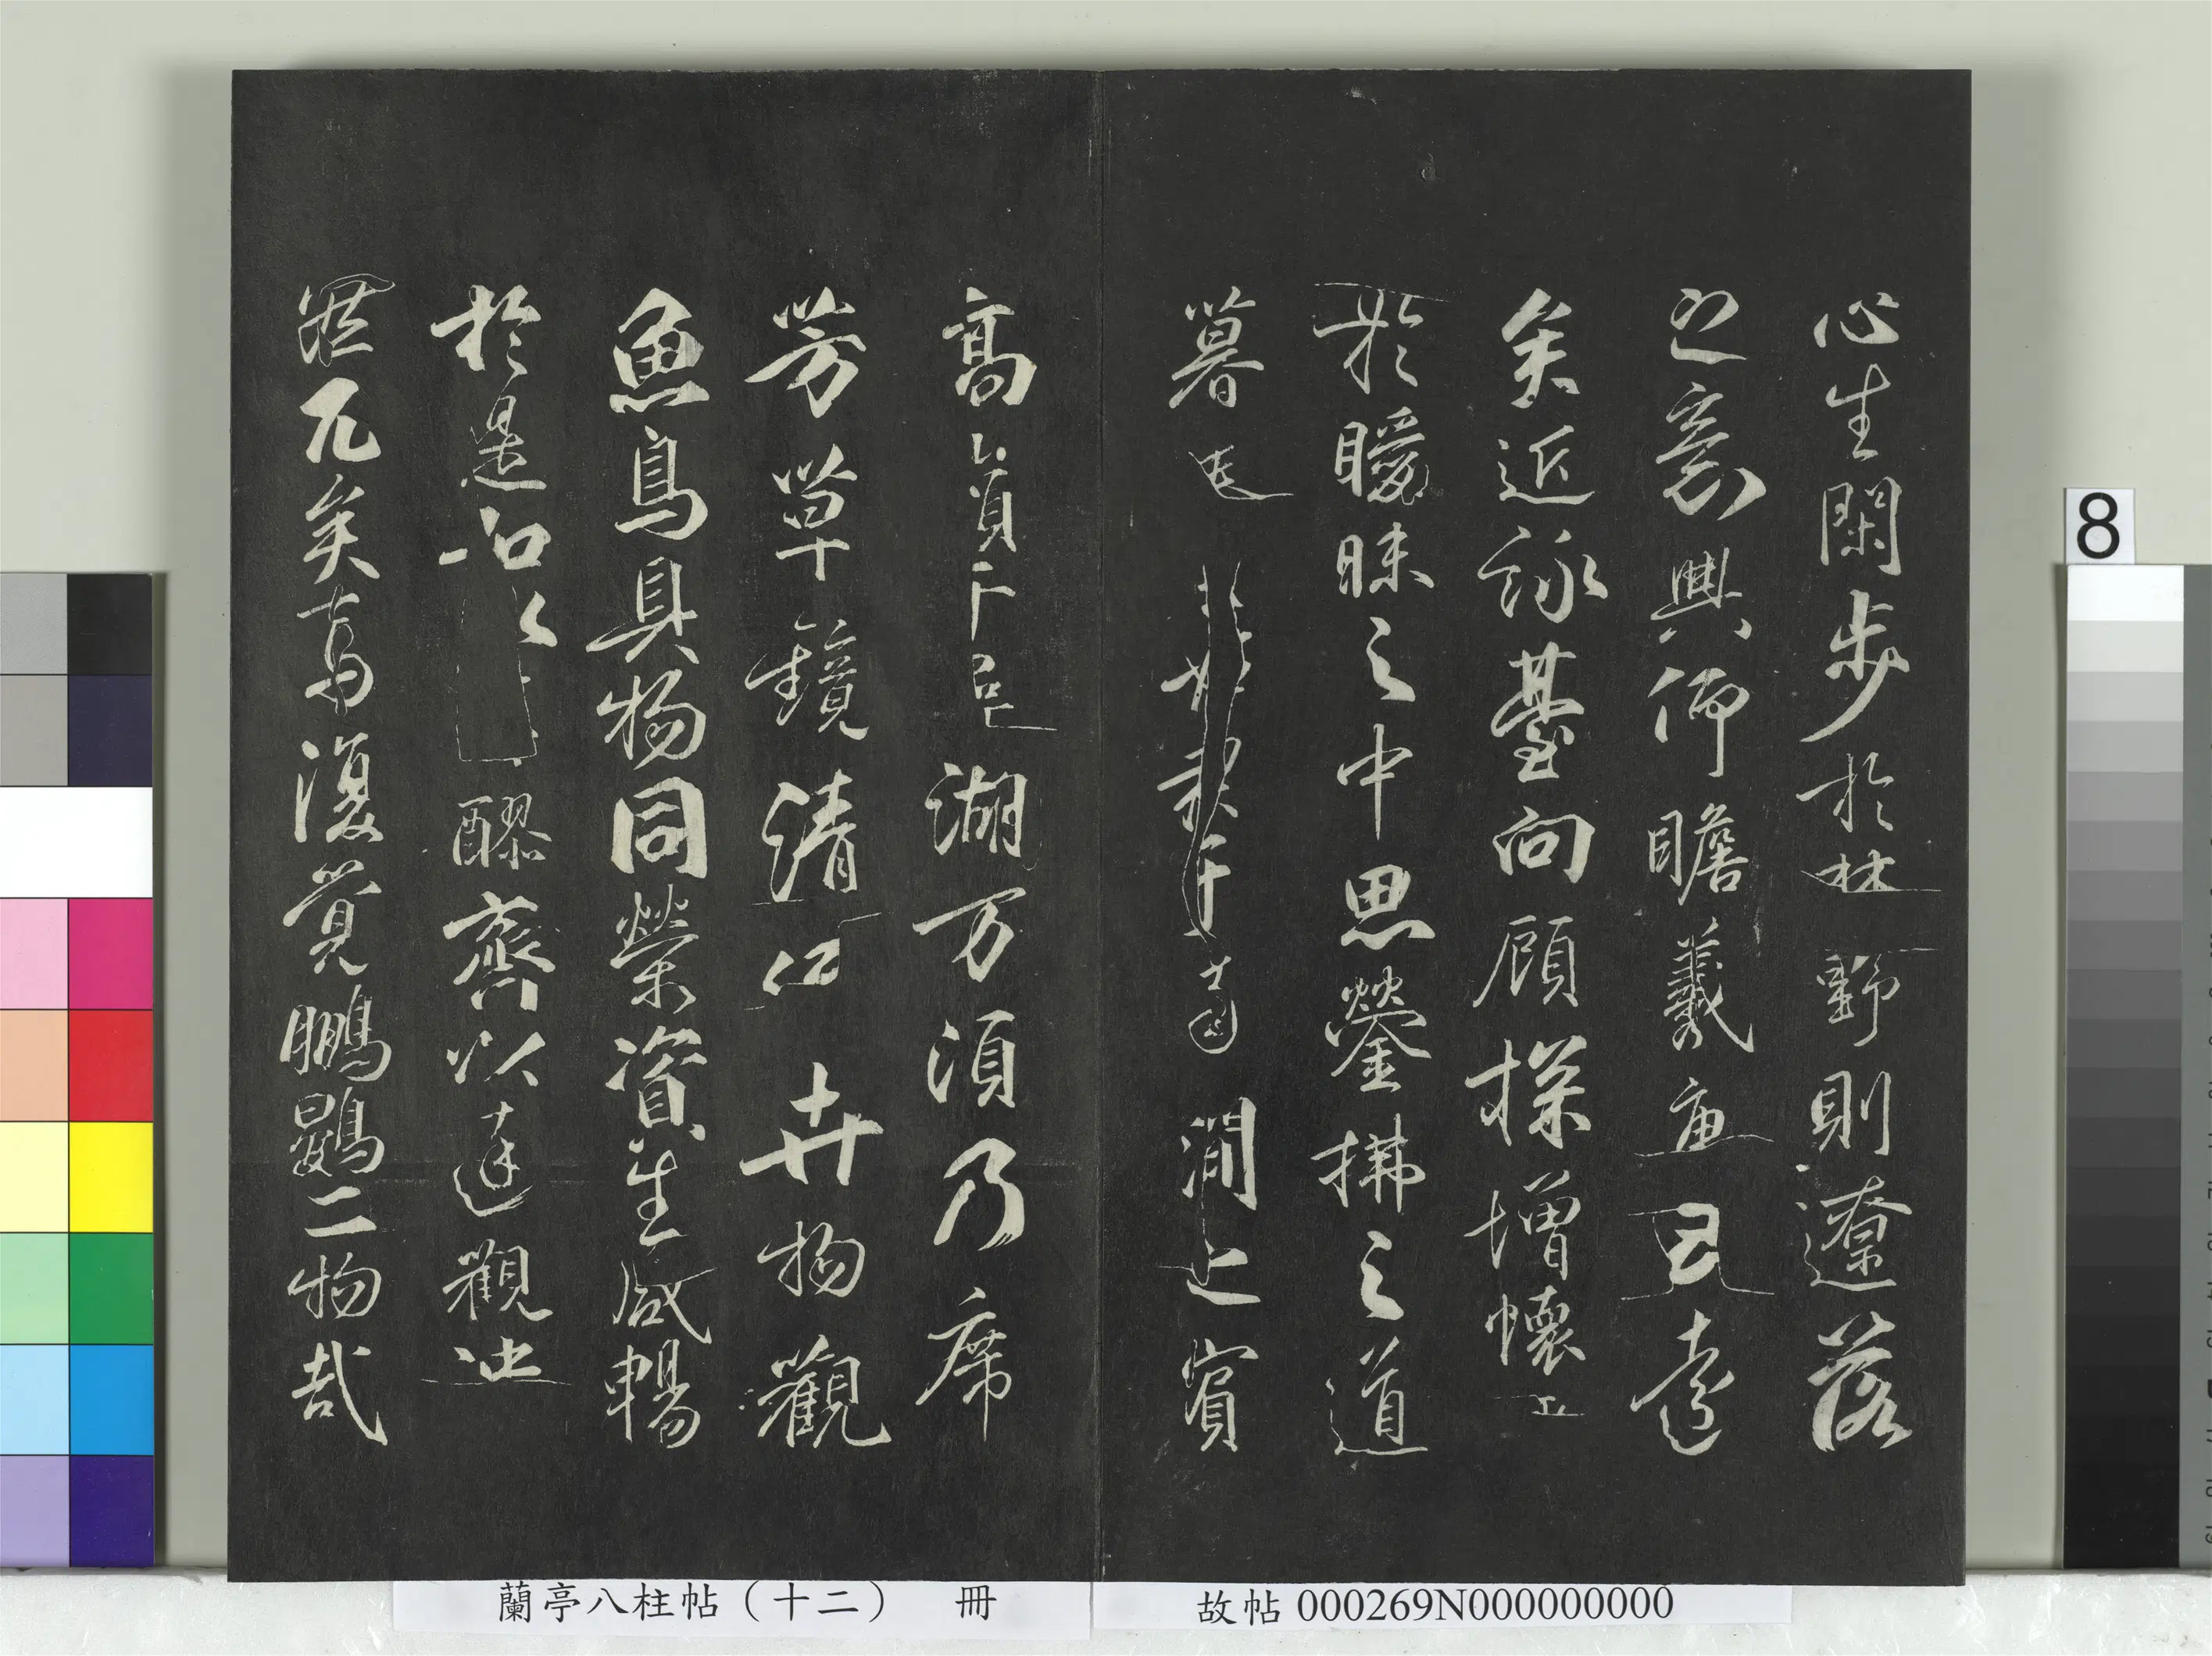 心生閑步於林野則遼落
之意興仰瞻羲已遠
矣近詠臺向顧探增懷
於曖昧之中思鎣拂之道
暮澗之濱
高湖万湏乃席
芳草鏡清卉物觀
魚鳥具物同榮資生咸暢
於是和以醪齊以達觀
兀矣焉復覺鵬鷃二物哉
8
蘭亭八柱帖（十二） 冊
故帖 000269N000000000